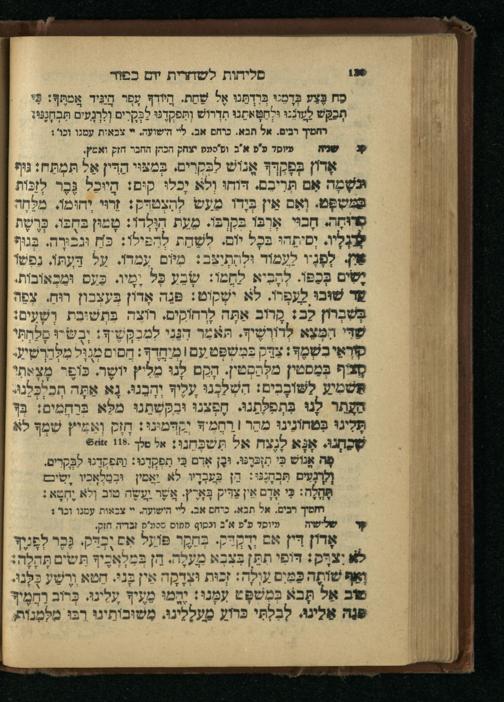 סליחות לשחרית יום כפור 130
מַה בֶּצַע בְּדָמֵנוּ בְּרִדְתֵּנוּ אֶל שַׁחַת. הֲיוֹדְךָ עָפָר הֲיַגִּיד אֲמִתֶּךָ: כִּי
תְבַקֵּשׁ לַעֲוֹנֵנוּ וּלְחַטֹּאתֵנוּ תִדְרוֹשׁ וְתִפְקְדֵנוּ לַבְּקָרִים וְלִרְגָעִים תִּבְחָנֵנוּ:
רחמיך רבים. אל תבא. כרחם אב. ליי הישועה. יי צבאות עמנו וכו׳:
שניה מיוסד ע״פ א״ב וס״סמס יצחק הכהן החבר חזק ואמץ.
אָדוֹן בְּפָקְדְּךָ אֱנוֹשׁ לַבְּקָרִים. בְּמִצּוּי הַדִּין אַל תִּמְתַּח: גּוּף
וּנְשָׁמָה אִם תְּרִיבֵם. דּוֹחוּ וְלֹא יָכְלוּ קוּם: הֲיוּכַל גֶּבֶר לִזְכּוֹת
בְּמִשְׁפָּט. וְאִם אֵין בְּיָדוֹ מַעַשׂ לְהִצְטַדֵּק: זֵרוּי יְהוּמוֹ. מִלְּחָה
סְרוּחָה. חָבוּי אָרְבּוֹ בְּקִרְבּוֹ. מֵעֵת הִוָּלְדוֹ: טָמוּן בְּחֻבּוֹ. כְּרֶשֶׁת
לְרַגְלָיו. יְסִיתֵהוּ בְּכָל יוֹם. לְשַׁחַת לְהַפִּילוֹ: כֹּחַ וּגְבוּרָה. בְּגוּף
אֵין. לְפָנָיו לַעֲמוֹד וּלְהִתְיַצֵּב: מִיּוֹם עָמְדוֹ. עַל דַּעְתּוֹ. נַפְשׁוֹ
יָשִׂים בְּכַפּוֹ. לְהָבִיא לַחְמוֹ: שְׂבַע כָּל יָמָיו. כַּעַס וּמַכְאוֹבוֹת.
עַד שׁוּבוֹ לַעֲפָרוֹ. לֹא יִשְׁקוֹט: פְּנֵה אָדוֹן בְּעִצְבוֹן רוּחַ. צְפֵה
בְּשִׁבְרוֹן לֵב: קָרוֹב אַתָּה לָרְחוֹקִים. רוֹצֶה בִּתְשׁוּבַת רְשָׁעִים:
שַׁדַּי הִמָּצֵא לְדוֹרְשֶׁיךָ. תֹּאמַר הִנֵּנִי לִמְבַקְשֶׁיךָ: יְבֻשְּׂרוּ סָלַחְתִּי
קוֹרְאֵי בְשִׁמְךָ: צַדֵּק בַּמִּשְׁפָּט עַם מְיַחֲדֶךָ: חֲסוֹם מְטוּל מִלְּהַרְשִׁיעַ.
קְצוֹף בְּמַסְטִין מִלְּהַסְטִין. הָקֵם לָנוּ מֵלִיץ יוֹשֶׁר. כּוֹפֶר מָצָאתִי
תַּשְׁמִיעַ לַשּׁוֹבָבִים: הִשְׁלַכְנוּ עָלֶיךָ יְהָבֵנוּ. נָא אַתָּה תְכַלְכְּלֵנוּ.
הֵעָתֵר לָנוּ בִּתְפִלָּתֵנוּ. חֶפְצֵנוּ וּבַקָּשָׁתֵנוּ מַלֵּא בְּרַחֲמִים: בְּךָ
תָּלִינוּ בִּטְחוֹנֵינוּ מַהֵר רַחֲמֶיךָ יְקַדְּמוּנוּ: חָזָק וְאַמִּיץ שִׁמְךָ לֹא
שָׁכָחְנוּ. אָנָּא לָנֶצַח אַל תִּשְׁכָּחֵנוּ: אל מלך Seite 118.
מָה אֱנוֹשׁ כִּי תִזְכְּרֶנּוּ. וּבֶן אָדָם כִּי תִפְקְדֶנּוּ: וַתִּפְקְדֶנּוּ לַבְּקָרִים.
וְלִרְגָעִים תִּבְחָנֶנּוּ: הֵן בַּעֲבָדָיו לֹא יַאֲמִין וּבְמַלְאָכָיו יָשִׂים
תָּהֳלָה: כִּי אָדָם אֵין צַדִּיק בָּאָרֶץ. אֲשֶׁר יַעֲשֶׂה טּוֹב וְלֹא יֶחֱטָא:
רחמיך רבים. אל תבא. כרחם אב. ליי הישועה. יי צבאות עמנו וכו׳:
שלישית מיוסד ע״פ א״ב ובסוף חתום זבדיה חזק.
אָדוֹן דִּין אִם יְדֻקְדַּק. בְּחֵקֶר פּוֹעַל אִם יֻבְדַּק. גֶּבֶר לְפָנֶיךָ
לֹא יִצְדָּק: דּוֹפִי תִתֵּן בִּצְבָא מַעְלָה. הֵן בְּמַלְאָכֶיךָ תָּשִׂים תָּהֳלָה:
וְאַף שׁוֹתֶה כַמַּיִם עַוְלָה: זְכוּת וּצְדָקָה אֵין בָּנוּ. חֵטְא וָרֶשַׁע כֻּלָּנוּ.
טוֹב אַל תָּבֹא בְּמִשְׁפָּט עִמָּנוּ: יֶהֱמוּ מֵעֶיךָ עָלֵינוּ. כְּרוֹב רַחֲמֶיךָ
פְּנֵה אֵלֵינוּ. לְבִלְתִּי כְּרוֹעַ מַעֲלָלֵינוּ. מְשׁוּבוֹתֵינוּ רַבּוּ מִלִּמְנוֹת